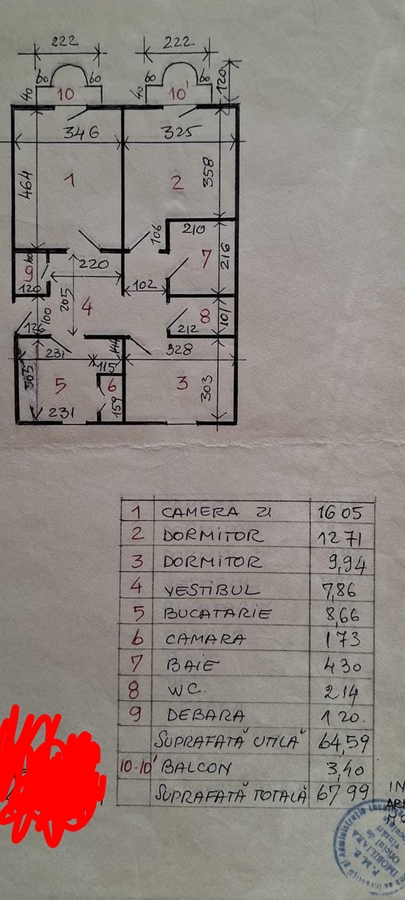 222 222
60 60 60 60 120
40 10 40 10'
346 325
464 1 2 358
106 210
7 216
9 220
120 102
205 4
100 8 101
212
231 328
115
303 5 6 3 303
231 159
1 CAMERA ZI 16 05
2 DORMITOR 12 71
3 DORMITOR 9,94
4 VESTIBUL 7,86
5 BUCATARIE 8,66
6 CAMARA 1 73
7 BAIE 4 30
8 WC. 2 14
9 DEBARA 1 20.
SUPRAFATĂ UTILĂ 64,59
10-10' BALCON 3,40
SUPRAFATĂ TOTALĂ 67 99